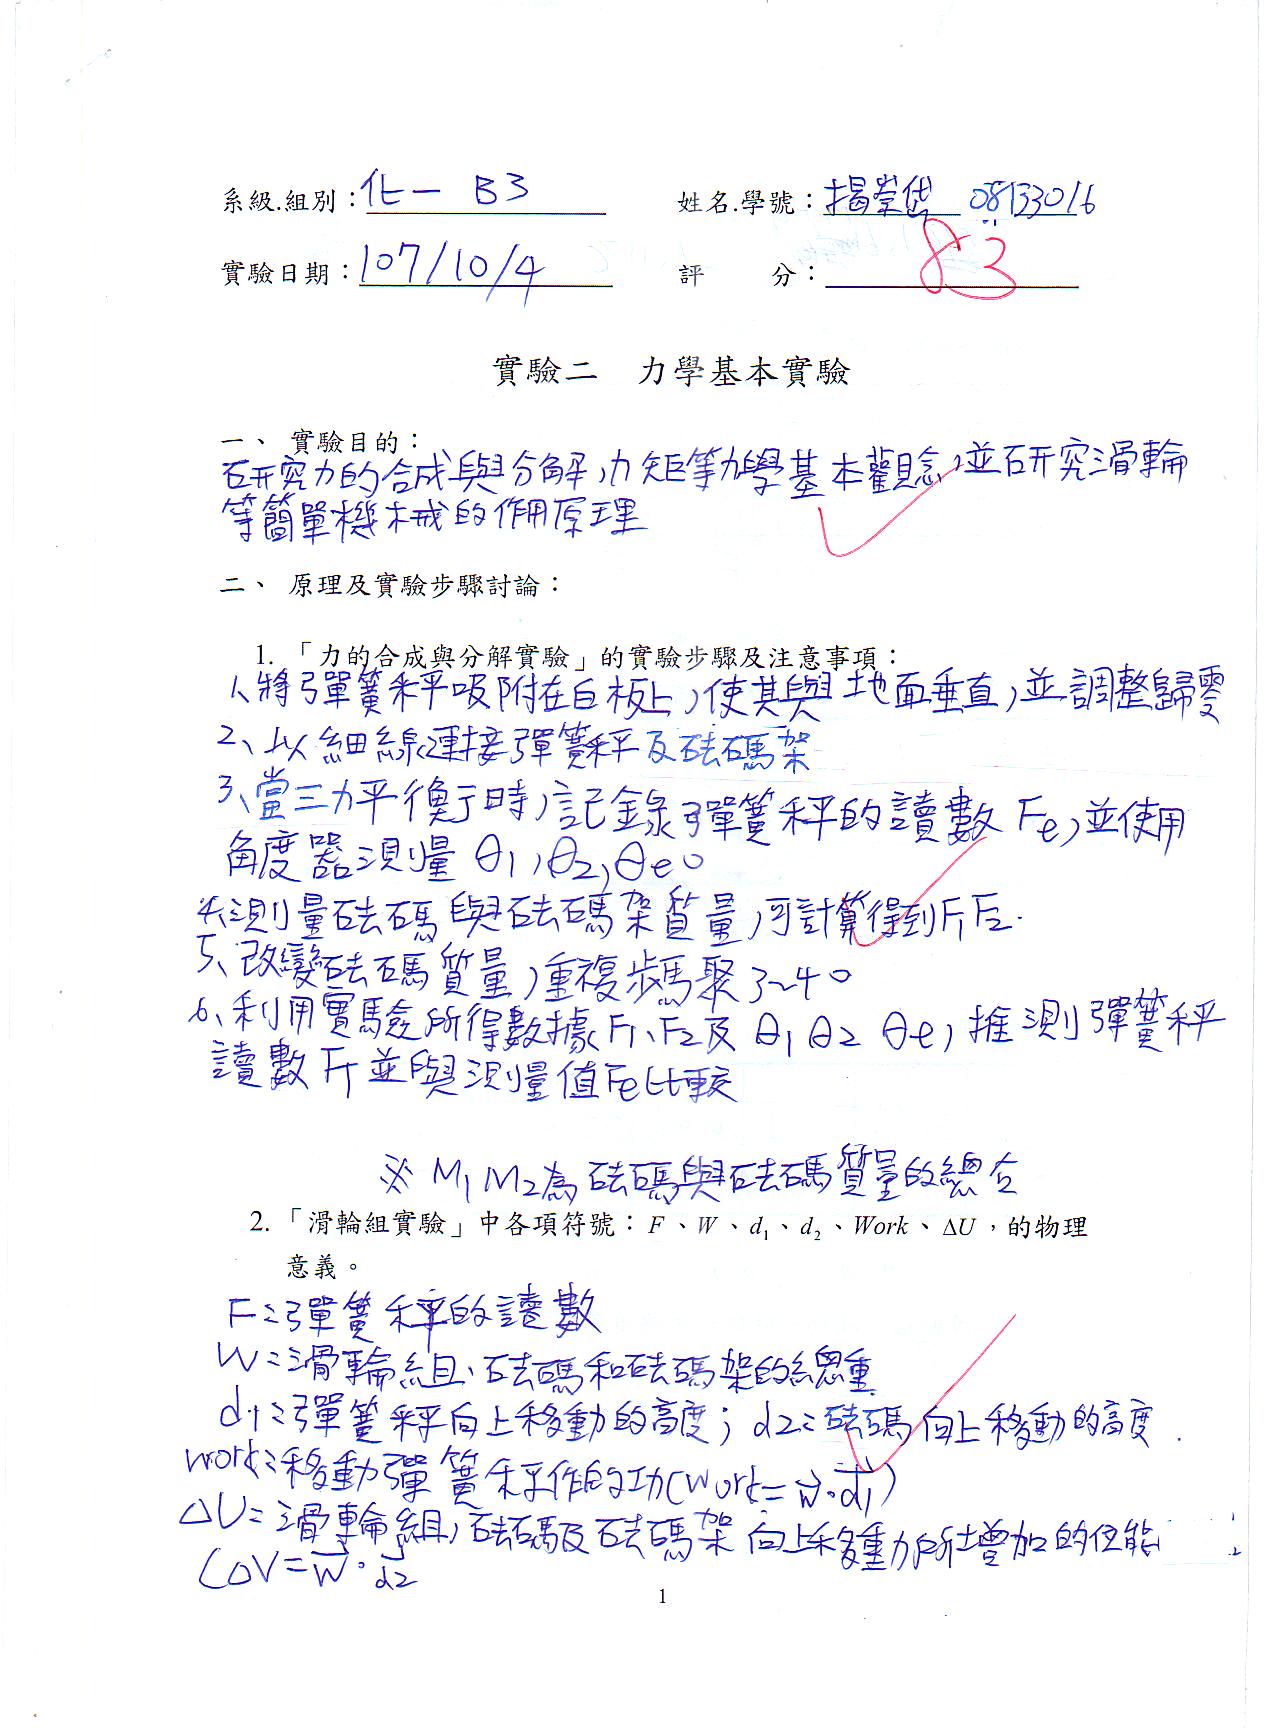 系級.組別：化一 B3 姓名.學號：楊崇岱 08133016
實驗日期：107/10/4 評 分：83
實驗二 力學基本實驗
一、 實驗目的：
研究力的合成與分解,力矩等力學基本觀念,並研究滑輪
等簡單機械的作用原理
二、 原理及實驗步驟討論：
1. 「力的合成與分解實驗」的實驗步驟及注意事項：
1、將彈簧秤吸附在白板上,使其與地面垂直,並調整歸零
2、以細線連接彈簧秤及砝碼架
3、當三力平衡時,記錄彈簧秤的讀數Fe,並使用
角度器測量θ1,θ2,θe。
4、測量砝碼與砝碼架質量,可計算得到F1 F2.
5、改變砝碼質量,重複步驟3~4。
6、利用實驗所得數據F1、F2及θ1 θ2 θe,推測彈簧秤
讀數FT並與測量值Fe比較
※ M1 M2為砝碼與砝碼質量的總合
2. 「滑輪組實驗」中各項符號：F、W、d1、d2、Work、ΔU，的物理
意義。
F:彈簧秤的讀數
W:滑輪組、砝碼和砝碼架的總重
d1:彈簧秤向上移動的高度; d2:砝碼向上移動的高度.
work:移動彈簧秤作的功(work=w·d1)
ΔU:滑輪組,砝碼及砝碼架向上移動所增加的位能
(ΔV=w·d2
1